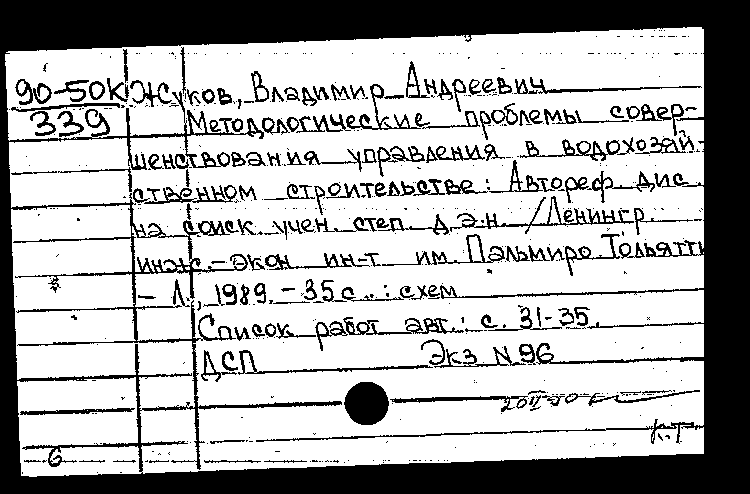 90-50к Жуков, Владимир Андреевич
339 Методологические проблемы совер-
шенствования управления в водохозяй-
ственном строительстве: Автореф. дис.
на соиск. учен. степ. д.э.н. /Ленингр.
инж.-экон. ин-т им. Пальмиро Тольятти
- Л., 1989. - 35 с. : схем
Список работ авт.: с. 31-35.
ДСП Экз N 96
6